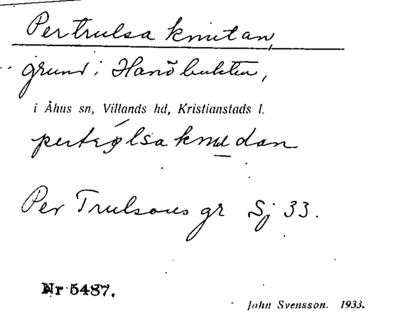 Pertrulsa knutan,
grund i Hanöbukten,
i Åhus sn, Villands hd, Kristianstads l.
Per Trulsons gr Sj 33.
Nr 5487.
John Svensson. 1933.